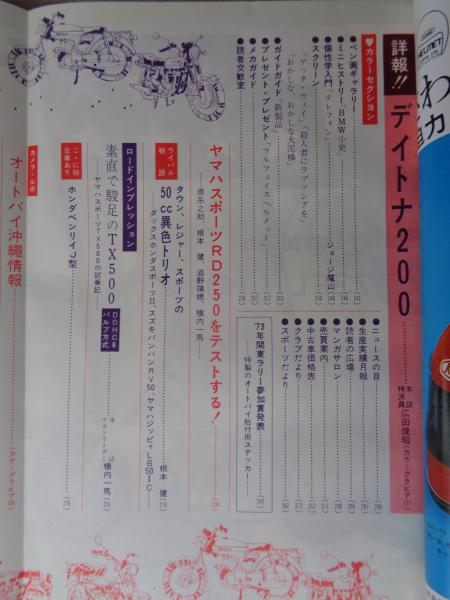 詳報!! デイトナ200
本誌特派員 広田俊昭(カラーグラビア)
♥カラーセクション
●ペン画ギャラリー
●ミニヒストリー、BMW小史
●個性学入門「テレフォン」 ジョージ魔山
●スクリーン
「ゲッタ・ウェイ」「殺人者にラブソングを」
「おかしな、おかしな大泥棒」
●ガイドガイド「新製品」
●プレゼント・プレゼント「フルフェイスヘルメット」
●メカガイド
●読者交歓室
●ニュースの目
●生産実績月報
●読者の広場
●マンガサロン
●売買案内
●中古車価格表
●クラブだより
●スポーツだより
73年関東ラリー参加賞発表
―特製のオートバイ貼付用ステッカー―
ヤマハスポーツRD250をテストする!
原糸之助、根本 健、滋野靖穂、横内一馬
ライバル物語
タウン、レジャー、スポーツの
50cc異色トリオ 根本 健
ダックスホンダスポーツⅡ、スズキバンバンRV50、ヤマハジッピィLB50IC
ロードインプレッション
素直で駿足のTX500
DOHC8バルブ方式
本誌テストライダー 横内一馬
―ヤマハスポーツTX500の試乗記―
ここに珍古車あり
ホンダベンリイJ型
カメラ・ルポ
オートバイ沖縄情報
(カラーグラビア)
HELMET